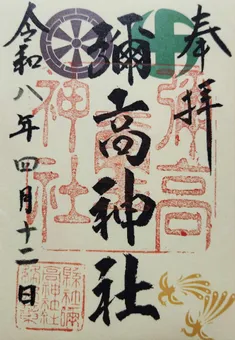 奉拝
彌高神社
令和八年四月十二日
彌高
神社